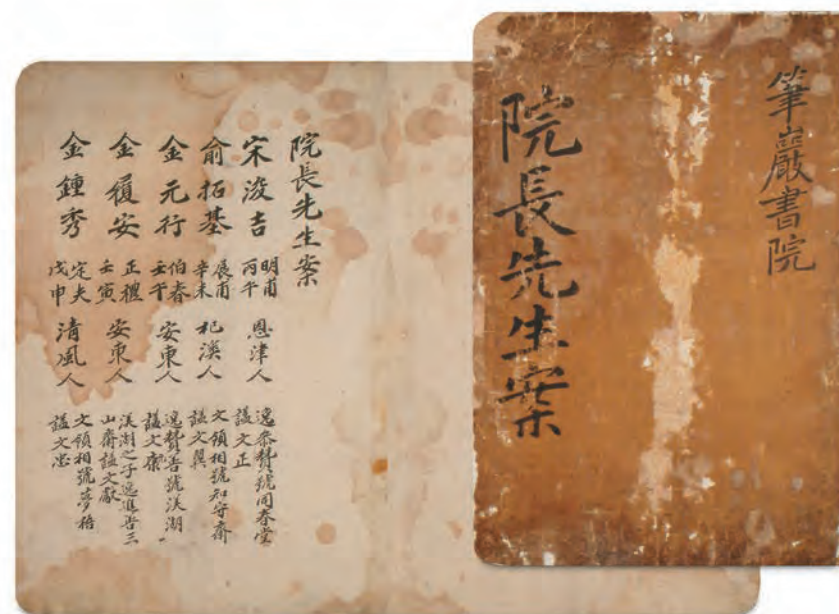 筆巖書院
院長先生案
院長先生案
宋浚吉 明甫 丙午 恩津人 逸參贊號同春堂 諡文正
俞拓基 展甫 辛未 杞溪人 文領相號知守齋 諡文翼
金元行 伯春 壬午 安東人 逸贊善號渼湖 諡文康
金履安 正禮 壬寅 安東人 渼湖之子逸進善三 山齋諡文獻
金鍾秀 定夫 戊申 清風人 文領相號夢梧 諡文忠